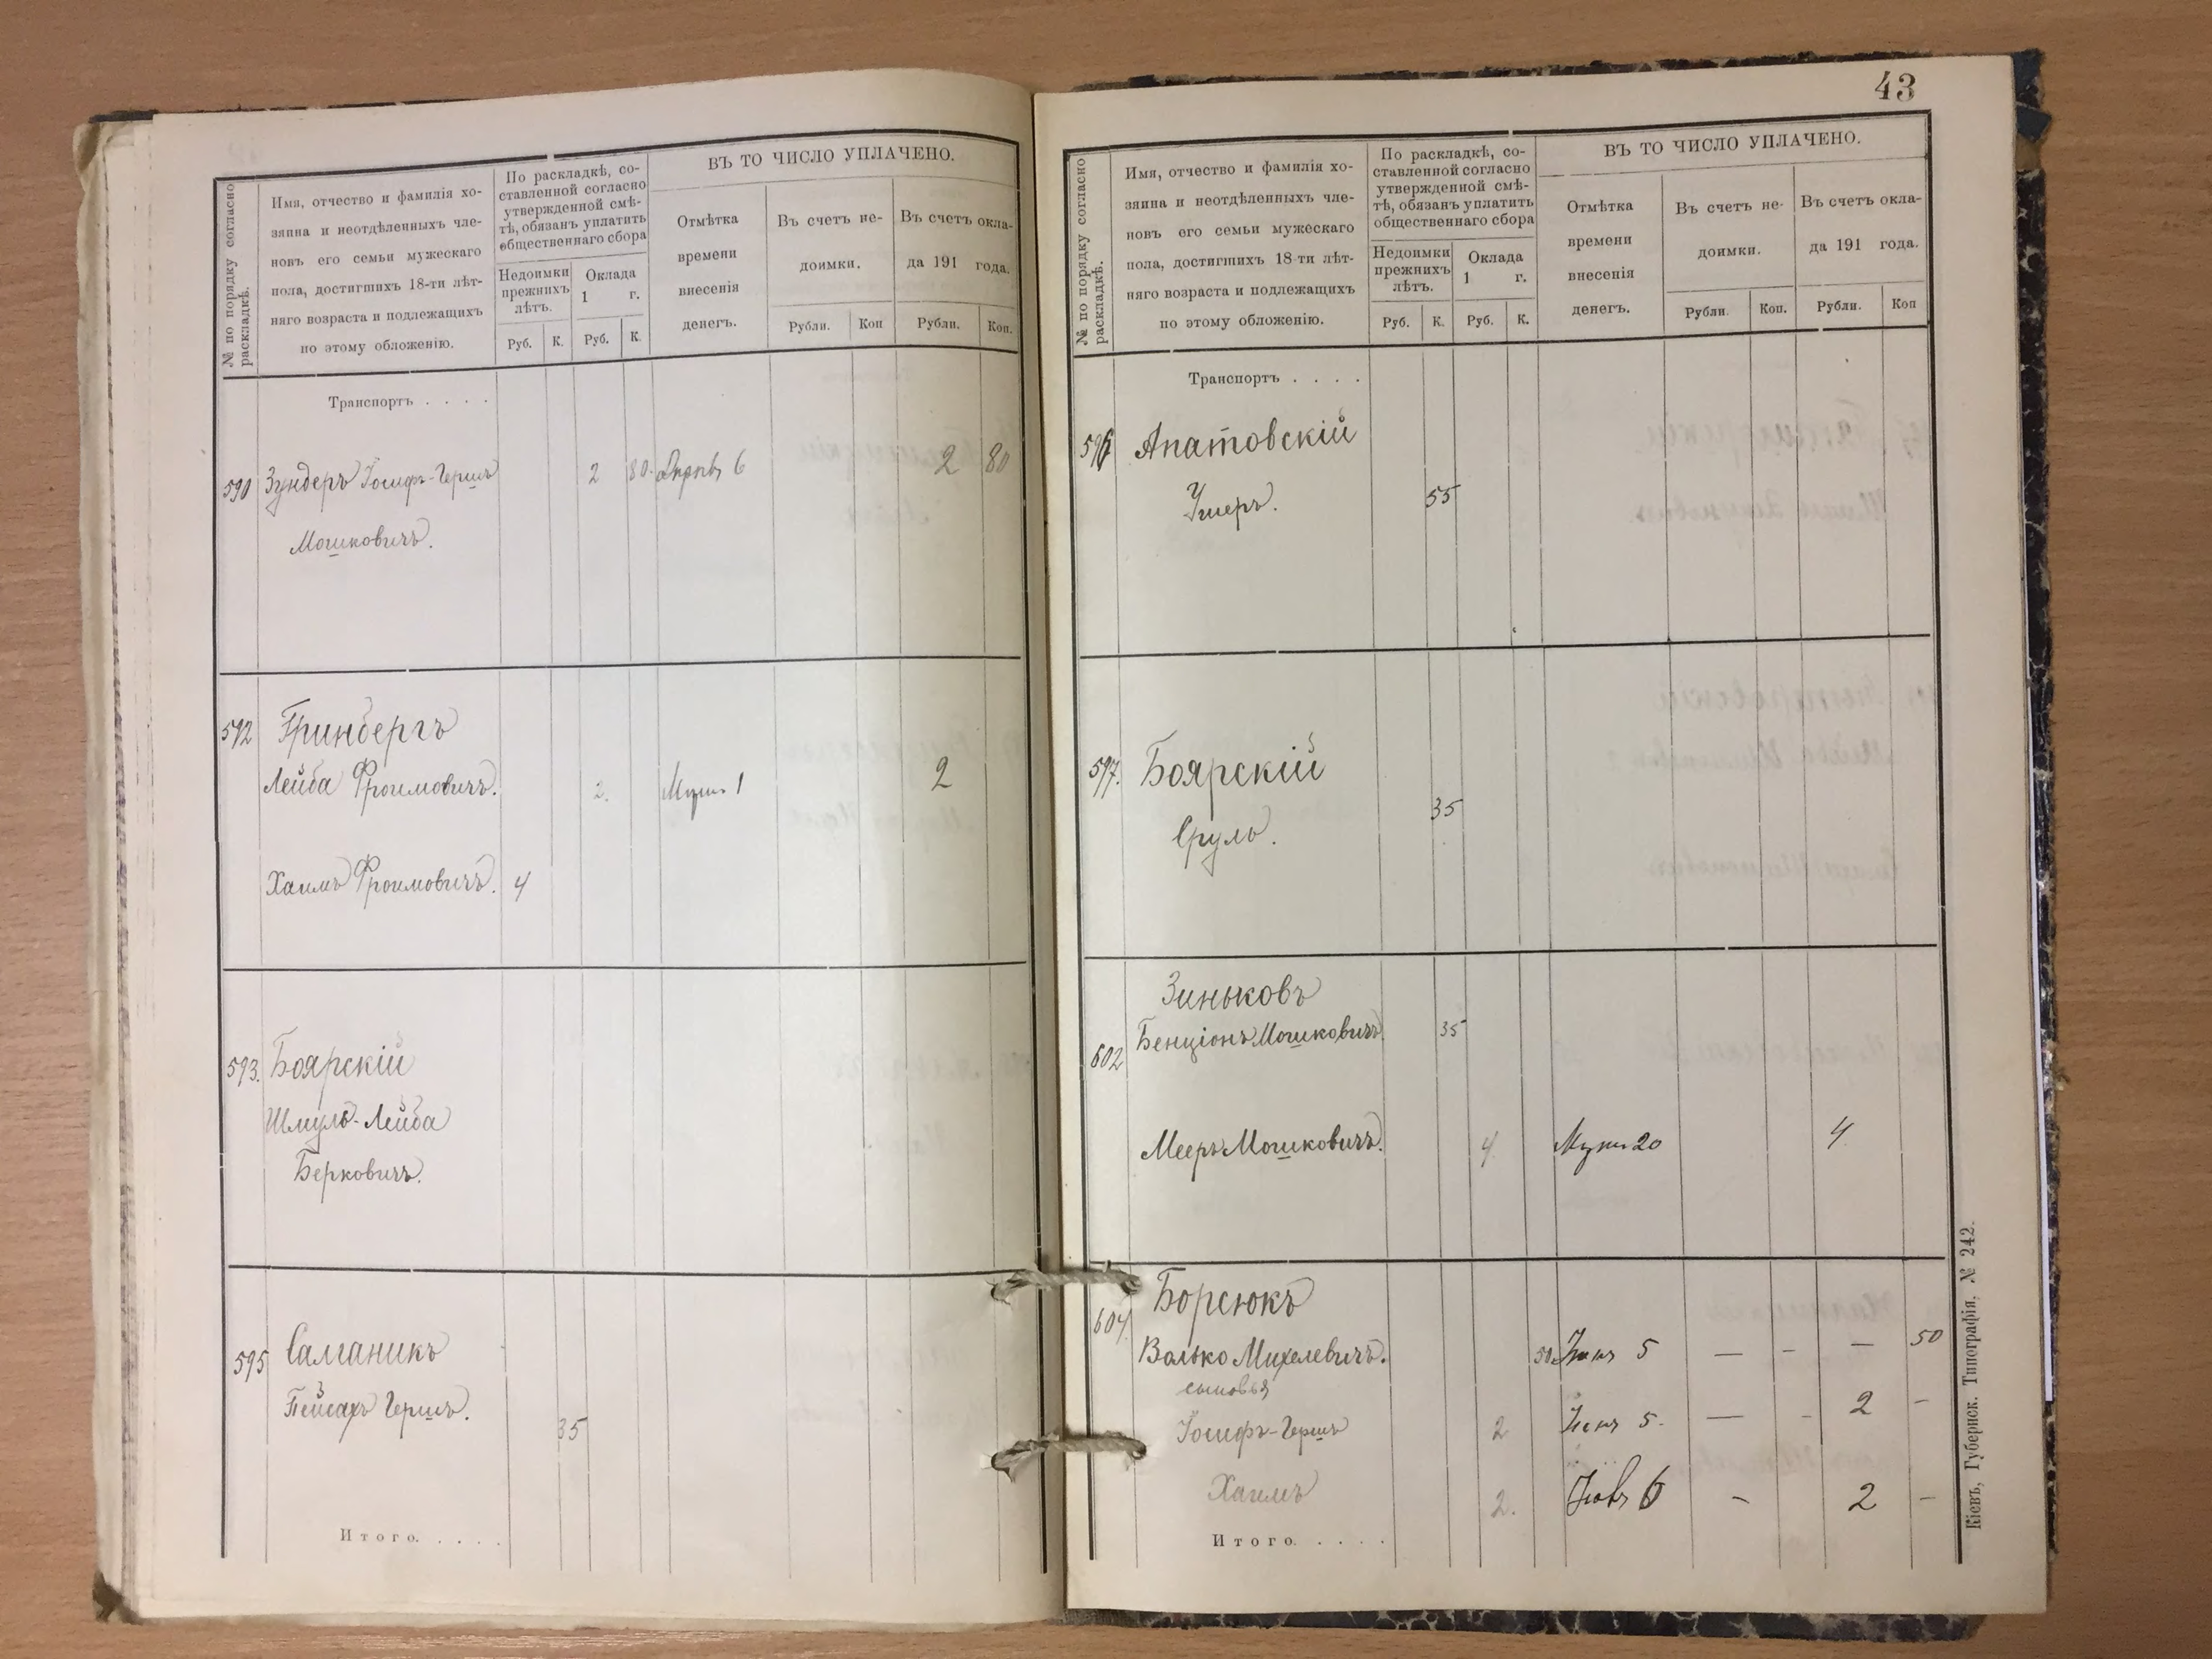 № по порядку согласно
раскладкѣ.
Имя, отчество и фамилія хо-
зяина и неотдѣленныхъ чле-
новъ его семьи мужескаго
пола, достигшихъ 18-ти лѣт-
няго возраста и подлежащихъ
по этому обложенію.
По раскладкѣ, со-
ставленной согласно
утвержденной смѣ-
тѣ, обязанъ уплатить
общественнаго сбора
Недоимки
прежнихъ
лѣтъ.
Оклада
1 г.
Руб. К. Руб. К.
ВЪ ТО ЧИСЛО УПЛАЧЕНО.
Отмѣтка
времени
внесенія
денегъ.
Въ счетъ не-
доимки.
Въ счетъ окла-
да 191 года.
Рубли. Коп Рубли. Коп.
Транспортъ . . . .
590 Зундеръ Іосифъ-Гершъ 2 80. 6 2 80
Мошковичъ.
592 Гринбергъ
Лейба Фроимовичъ. 2. 1 2
Хаимъ Фроимовичъ. 4
593. Боярскій
Шмуль-Лейба
Берковичъ.
595 Салганикъ
Пейсахъ Гершъ. 35
Итого. . . . .
43
№ по порядку согласно
раскладкѣ.
Имя, отчество и фамилія хо-
зяина и неотдѣленныхъ чле-
новъ его семьи мужескаго
пола, достигшихъ 18-ти лѣт-
няго возраста и подлежащихъ
по этому обложенію.
По раскладкѣ, со-
ставленной согласно
утвержденной смѣ-
тѣ, обязанъ уплатить
общественнаго сбора
Недоимки
прежнихъ
лѣтъ.
Оклада
1 г.
Руб. К. Руб. К.
ВЪ ТО ЧИСЛО УПЛАЧЕНО.
Отмѣтка
времени
внесенія
денегъ.
Въ счетъ не-
доимки.
Въ счетъ окла-
да 191 года.
Рубли. Коп. Рубли. Коп
Транспортъ . . . .
596 Апатовскій
Ушеръ. 55
597. Боярскій
Сруль. 35
Зиньковъ
602 Бенціонъ Мошковичъ. 35
Мееръ Мошковичъ. 4. 20 4.
604. Борсюкъ
Волько Михелевичъ. 50. 5 — - — 50
сыновья
Іосифъ-Гершъ 2 5. — - 2 -
Хаимъ 2. 6 - 2 -
Итого. . . . .
Кіевъ, Губернск. Типографія. № 242.